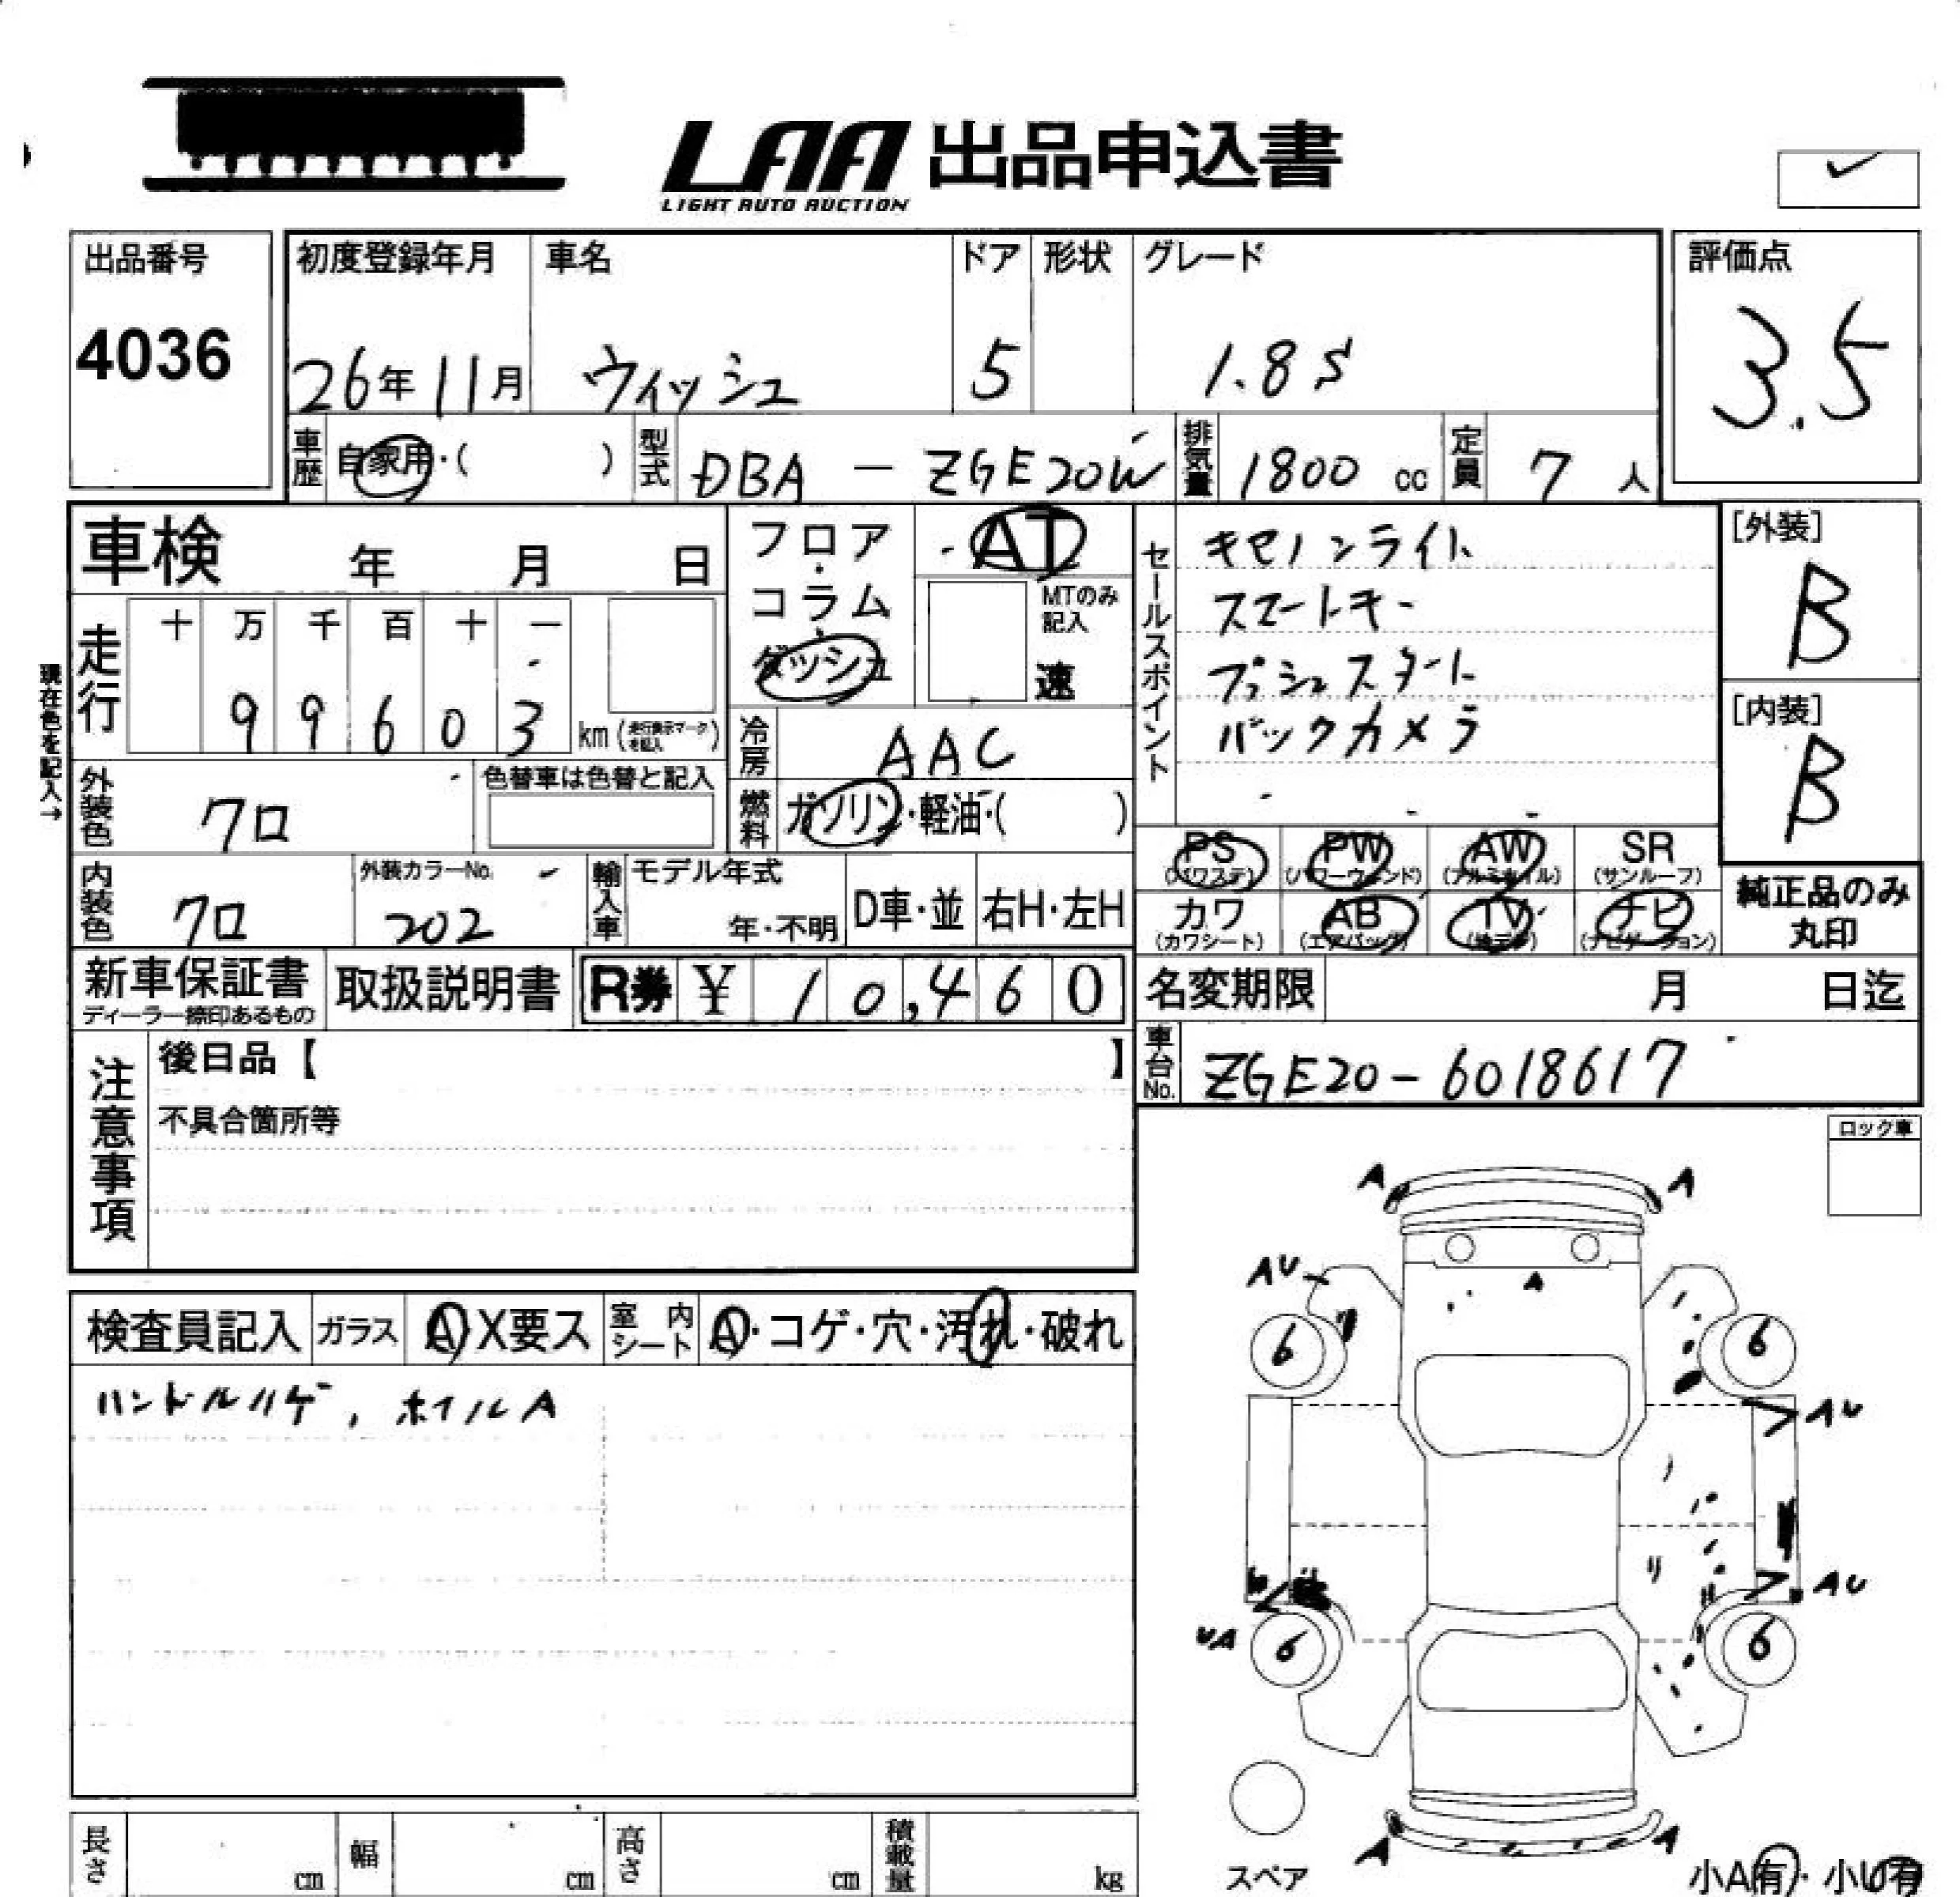 LAA 出品申込書
LIGHT AUTO AUCTION
出品番号
4036
初度登録年月 車名 ドア 形状 グレード
26年11月 ウィッシュ 5 1.8S
評価点
3.5
車歴 自家用・( ) 型式 DBA - ZGE20W 排気量 1800 cc 定員 7 人
車検 年 月 日
走行 十 万 千 百 十 一
9 9 6 0 3 km (走行表示マークを記入)
現在色を記入→
外装色 クロ 色替車は色替と記入
内装色 クロ 外装カラーNo. 202 輸入車 モデル年式 年・不明 D車・並 右H・左H
フロア・コラム・ダッシュ
AT
MTのみ記入
速
冷房 AAC
燃料 ガソリン・軽油・( )
セールスポイント
キセノンライト
スマートキー
プッシュスタート
バックカメラ
[外装]
B
[内装]
B
PS PW AW SR
(パワステ) (パワーウィンド) (アルミホイル) (サンルーフ)
カワ AB TV ナビ
(カワシート) (エアバッグ) (地デジ) (ナビゲーション)
純正品のみ
丸印
新車保証書 取扱説明書 R券 ¥ 10,460
ディーラー捺印あるもの
名変期限 月 日迄
車台No. ZGE20-6018617
注意事項
後日品【 】
不具合箇所等
ロック車
検査員記入 ガラス A X要ス 室内シート A・コゲ・穴・汚れ・破れ
ハンドルハゲ, ホイルA
A A
AU A
6 6
AU
AU
UA 6 6
A A
スペア 小A有・小U有
長さ cm 幅 cm 高さ cm 積載量 kg